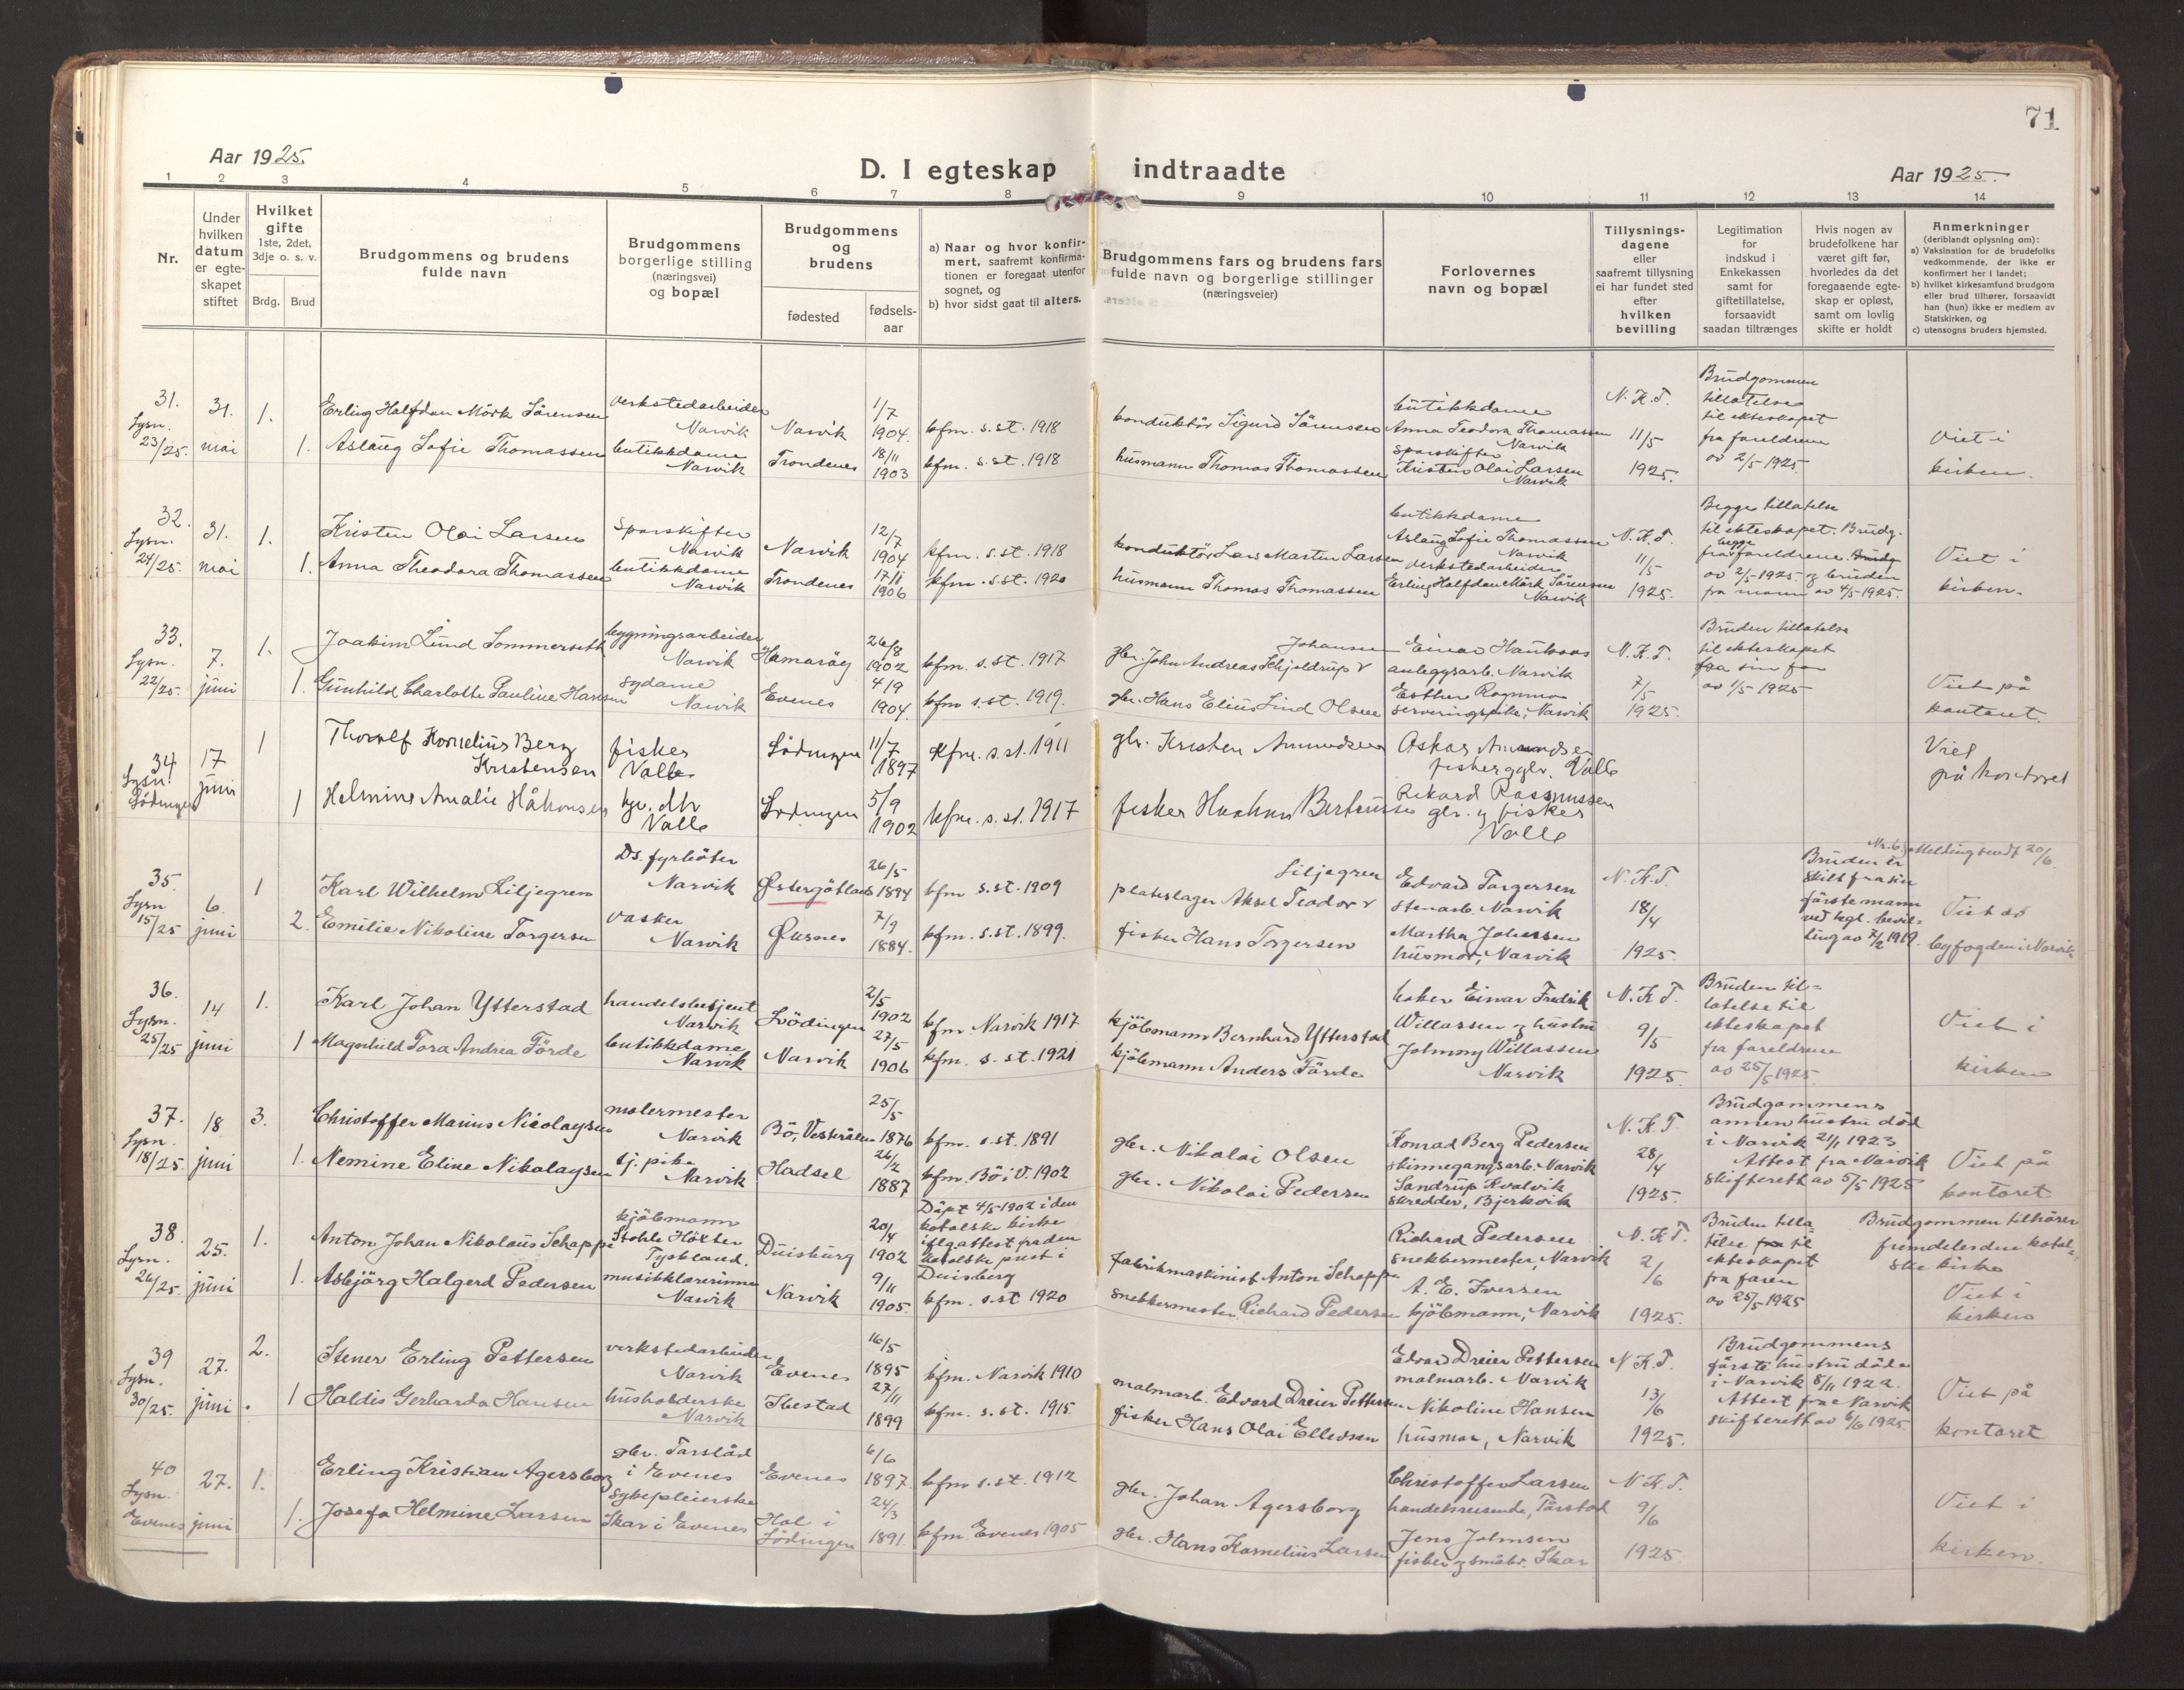 71
Aar 1925.
D. I egteskap indtraadte
Aar 1925.
1 2 3 4 5 6 7 8 9 10 11 12 13 14
Nr.
Under hvilken datum er egte-skapet stiftet
Hvilket gifte
1ste, 2det, 3dje o. s. v.
Brdg. Brud
Brudgommens og brudens fulde navn
Brudgommens borgerlige stilling (næringsvei) og bopæl
Brudgommens og brudens
fødested
fødsels-aar
a) Naar og hvor konfir-mert, saafremt konfirma-tionen er foregaat utenfor sognet, og
b) hvor sidst gaat til alters.
Brudgommens fars og brudens fars fulde navn og borgerlige stillinger (næringsveier)
Forlovernes navn og bopæl
Tillysnings-dagene eller saafremt tillysning ei har fundet sted efter hvilken bevilling
Legitimation for indskud i Enkekassen samt for giftetillatelse, forsaavidt saadan tiltrænges
Hvis nogen av brudefolkene har været gift før, hvorledes da det foregaaende egte-skap er opløst, samt om lovlig skifte er holdt
Anmerkninger
(deriblandt oplysning om):
a) Vaksination for de brudefolks vedkommende, der ikke er konfirmert her i landet;
b) hvilket kirkesamfund brudgom eller brud tilhører, forsaavidt han (hun) ikke er medlem av Statskirken, og
c) utensogns bruders hjemsted.
31. Lysn. 23/25.
31. mai
1. Erling Halfdan Mörk Sörensen
verkstedarbeider Narvik
Narvik
1/7 1904.
kfm. s. st. 1918
konduktör Sigurd Sörensen
butikkdame Anna Teodora Thomassen Narvik
N.K.T. 11/5 1925.
Brudgommen tillatelse til ekteskapet fra foreldrene av 2/5 1925.
Viet i kirken.
1. Aslaug Sofie Thomassen
butikkdame Narvik
Trondenes
18/11 1903
kfm. s. st. 1918
husmann Thomas Thomassen
sporskifter Kristen Olai Larsen Narvik
32. Lysn. 24/25.
31. mai
1. Kristen Olai Larsen
Sporskifter Narvik
Narvik
12/7 1904
kfm. s. st. 1918
konduktör Lars Martin Larsen
butikkdame Aslaug Sofie Thomassen Narvik
N.K.T. 11/5 1925.
Begge tillatelse til ekteskapet. Brudg. fra begge foreldrene Brudg av 2/5-1925. og bruden fra moren av 4/5-1925.
Viet i kirken.
1. Anna Theodora Thomassen
butikkdame Narvik
Trondenes
17/11 1906
kfm. s. st. 1920
husmann Thomas Thomassen
verkstedarbeider Erling Halfdan Mörk Sörensen Narvik
33. Lysn. 22/25.
7. juni
1. Joakim Lund Sommerseth
bygningsarbeider Narvik
Hamaröy
26/8 1902
kfm. s. st. 1917
gbr. John Andreas Schjeldrup Johansen
Einar Haukaas anleggsarb. Narvik
N.K.T. 7/5 1925.
Bruden tillatelse til ekteskapet fra sin far av 1/5 1925
Viet på kontoret.
1. Gunhild Charlotte Pauline Hansen
sydame Narvik
Evenes
4/9 1904.
kfm s. st. 1919.
gbr. Hans Elius Lind Olsen
Esther Ragnmo serveringspike, Narvik
34. Lysn. Lödingen
17 juni
1 Thorolf Kornelius Berg Kristensen
fisker Valle
Lödingen
11/7 1897
kfm. s. st. 1911
gbr. Kristen Amundsen
Oskar Amundsen fisker og gbr. Valle
Viet på kontoret
1 Helmine Amalie Håkonsen
Valle
Lödingen
5/9 1902
kfm. s. st. 1917
fisker Haakon
Rikard Rasmussen gbr. og fisker Valle
35. Lysn 15/25
6. juni
1 Karl Wilhelm Liljegren
Ds. fyrböter Narvik
Østergötland
26/5 1894
kfm s. st. 1909
plateslager Aksel Teodor Liljegren
Edvard Torgersen stenarb. Narvik
N.K.T. 18/4 1925.
Bruden er skilt fra sin förste mann ved kgl. bevil-ling av 7/2 1919.
Nr. 6. Melding sendt 20/6.
Viet av byfogden i Narvik
2. Emilie Nikoline Torgersen
vasker Narvik
Øksnes
7/9 1884.
kfm. s. st. 1899.
fisker Hans Torgersen
Martha Johansen husmor, Narvik
36. Lysn. 25/25
14 juni
1. Karl Johan Ytterstad
handelsbetjent Narvik
Lödingen
2/5 1902
kfm Narvik 1917
kjöbmann Bernhard Ytterstad
baker Einar Fredrik Willassen og hustru Johnny Willassen Narvik
N.K.T. 9/5 1925.
Bruden til-latelse til ekteskapet fra foreldrene av 25/5 1925.
Viet i kirken
1 Magnhild Tora Andrea Förde
butikkdame Narvik
Narvik
27/5 1906
kfm. s. st. 1921
kjöbmann Anders Förde
37. Lysn. 18/25.
18 juni
3. Christoffer Marius Nicolaysen
malermester Narvik
Bö, Vesterålen
25/5 1876
kfm. s. st. 1891
gbr. Nikolai Olsen
Konrad Berg Pedersen skinnegangsarb. Narvik
N.K.T. 28/4 1925.
Brudgommens annen hustru död i Narvik 21/1 1923 Attest fra Narvik skifterett av 5/5 1925
Viet på kontoret
1. Nemine Eline Nikolaysen
tj. pike Narvik
Hadsel
26/2 1887
kfm. Bö i V. 1902
gbr. Nikolai Pedersen
Sandrup Kvalvik skredder, Bjerkvik
38. Lysn. 26/25.
25. juni
1. Anton Johan Nikolaus Schappe
kjöbmann Stahle Höxter Tyskland.
Duisburg
20/4 1902
Döpt 4/5-1902 i den katolske kirke iflg. attest fra den katolske prest i Duisberg
fabrikmaskinist Anton Schappe
Richard Pedersen snekkermester, Narvik
N.K.T. 2/6 1925.
Bruden tilla-telse fra til ekteskapet fra faren av 25/5 1925
Brudgommen tilhörer fremdeles den katol-ske kirke
Viet i kirken
1. Asbjörg Halgerd Pedersen
musikklærerinne Narvik
Narvik
9/11 1905.
kfm. s. st 1920
snekkermester Richard Pedersen
A. E. Iversen kjöbmann, Narvik
39 Lysn. 30/25.
27. juni.
2. Stener Erling Pettersen
verkstedarbeider Narvik
Evenes
16/5 1895
kfm. Narvik 1910
malmarb. Edvard Dreier Pettersen
Edvard Dreier Pettersen malmarb. Narvik
N.K.T. 13/6 1925.
Brudgommens förste hustru döde i Narvik 8/11 1922. Attest fra Narvik skifterett av 6/6 1925.
Viet på kontoret
1 Haldis Gerharda Hansen
husholderske Narvik
Ibestad
27/11 1899
kfm. s. st. 1915.
fisker Hans Olai Elledsen
Nikoline Hansen husmor, Narvik
40 Lysn. Evenes
27. juni
1. Erling Kristian Agersborg
gbr. Tårstad i Evenes
Evenes
6/6 1897
kfm s. st. 1912
gbr. Johan Agersborg
Christoffer Larsen handelsreisende, Tårstad
N.K.T. 9/6 1925
Viet i kirken.
1. Josefa Helmine Larsen
sykepleierske Skar i Evenes
Hol i Lödingen
24/3 1891.
kfm. Evenes 1905
gbr. Hans Kornelius Larsen
Jens Johnsen fisker og småbr. Skar